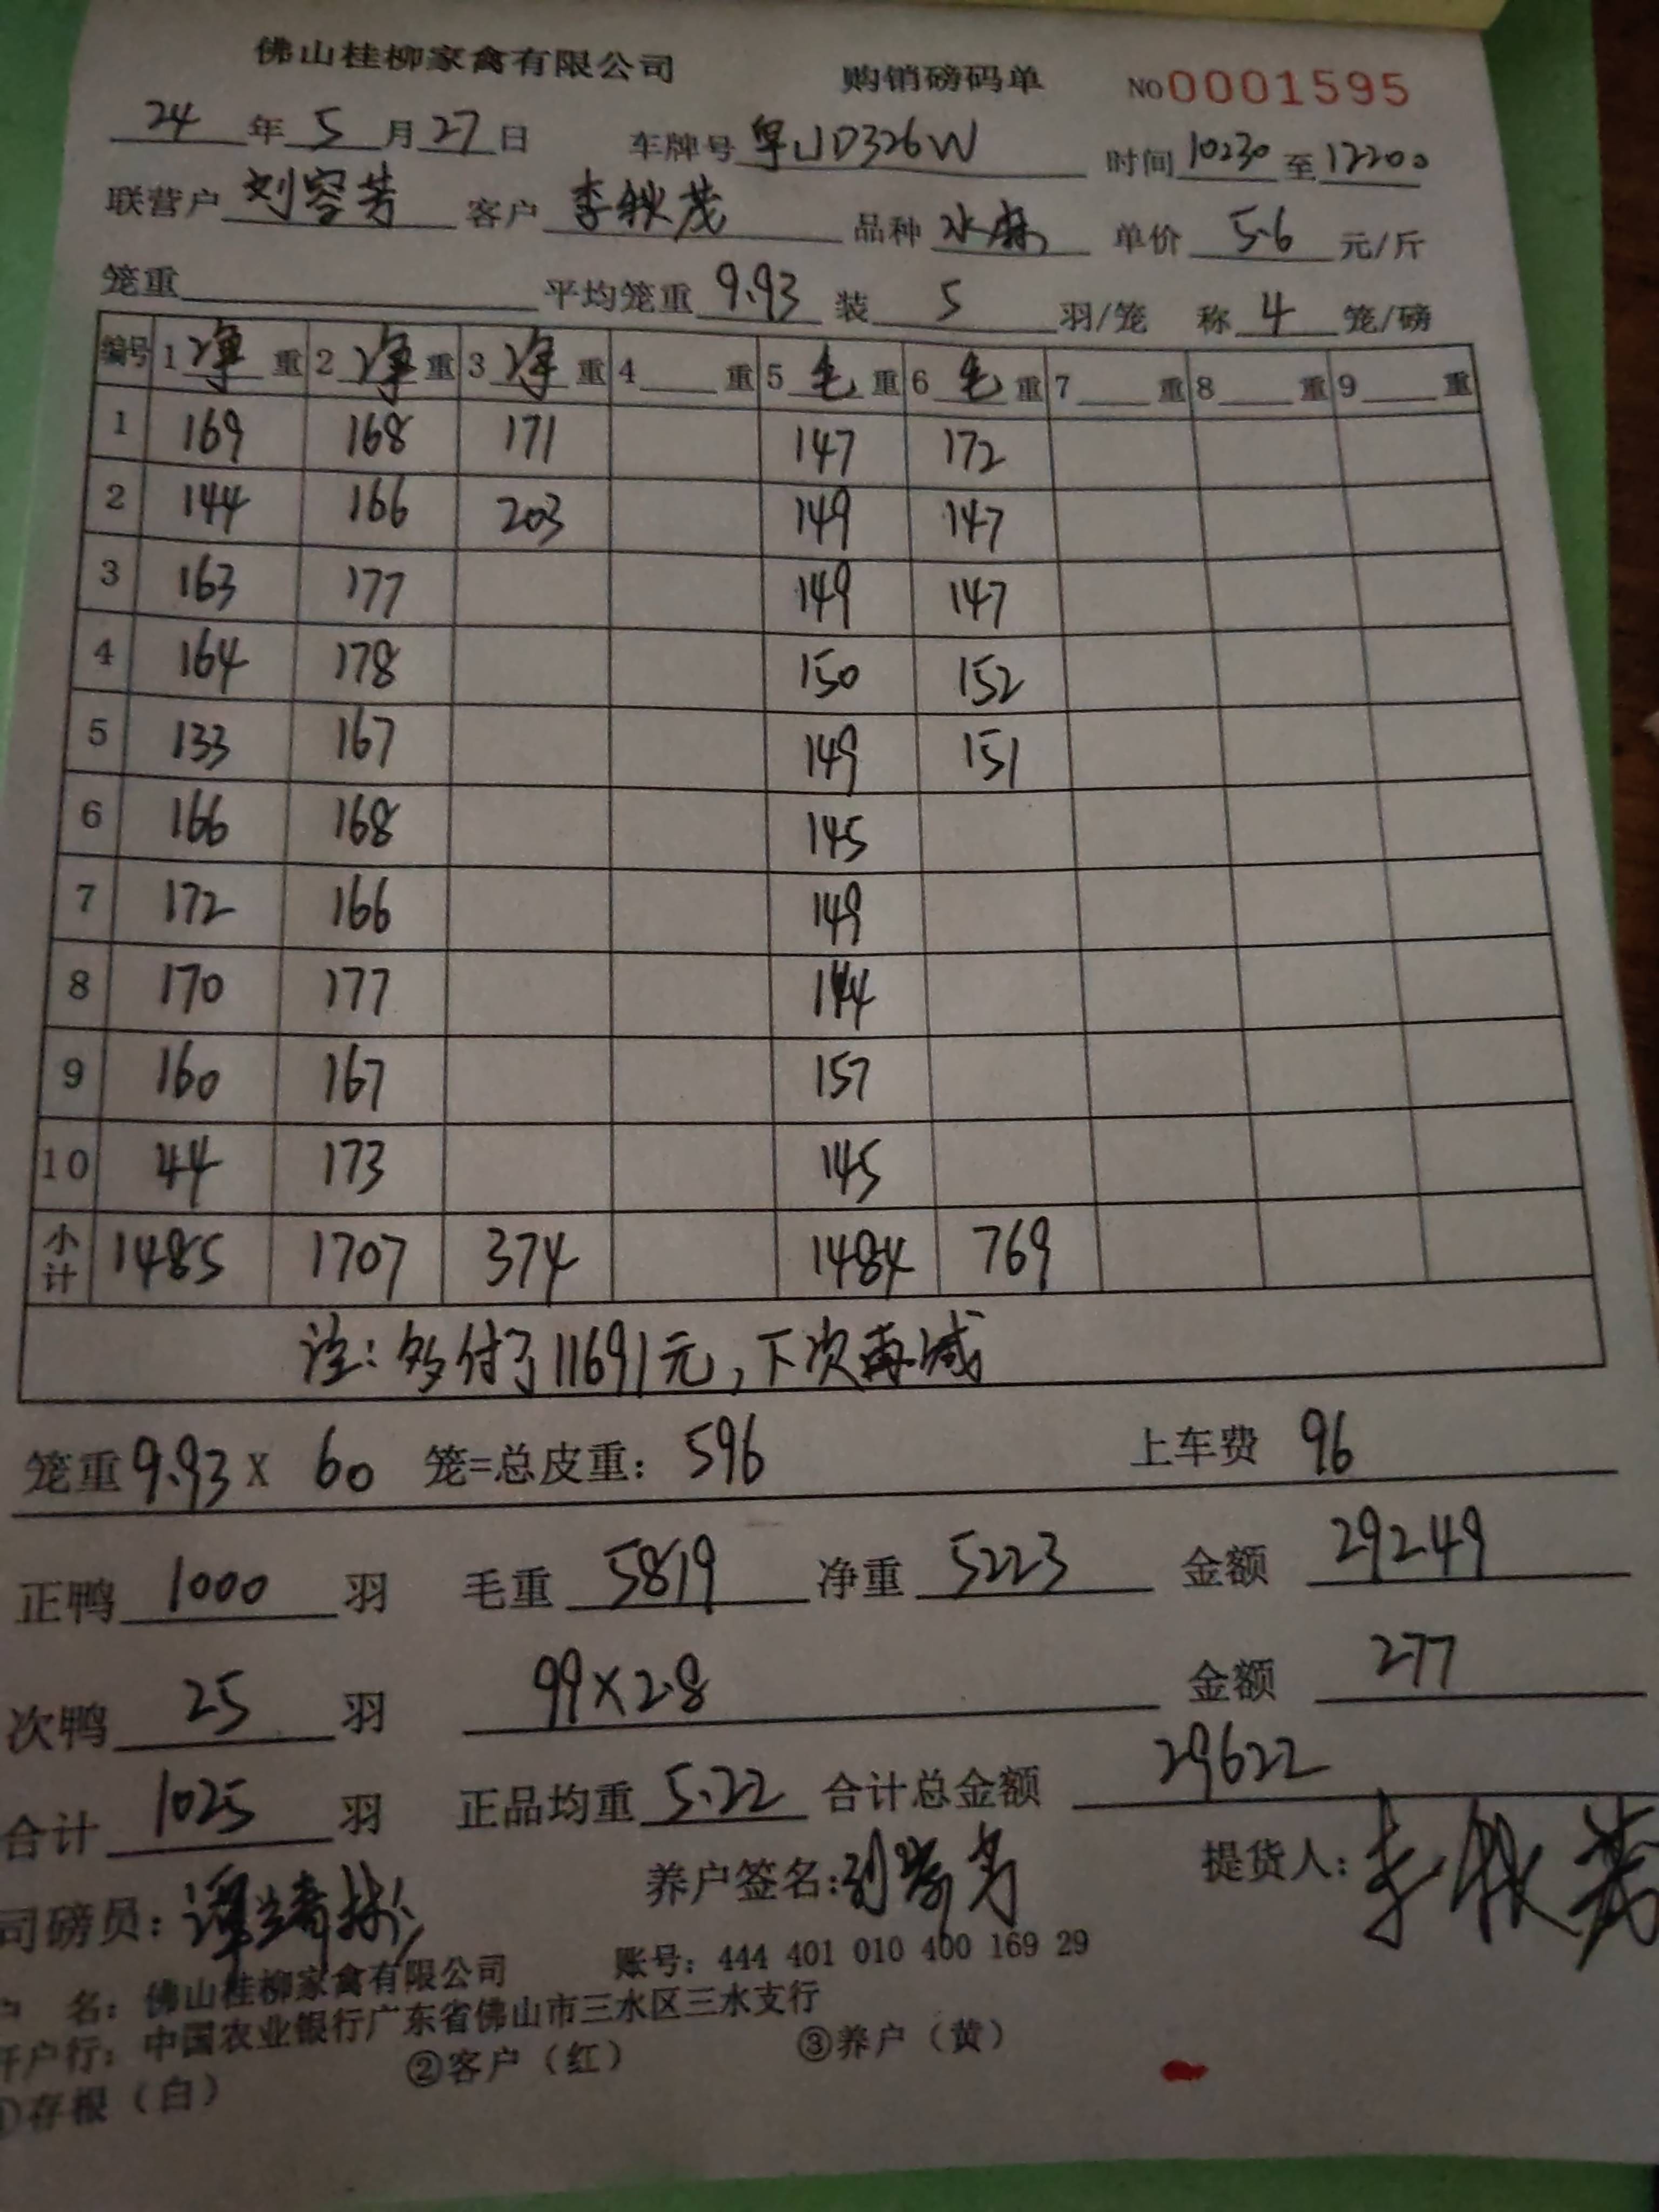 佛山桂柳家禽有限公司 购销磅码单 NO 0001595
24 年 5 月 27 日 车牌号 粤JD326W 时间 10:30 至 12:00
联营户 刘容芳 客户 李秋茂 品种 水麻 单价 5.6 元/斤
笼重 平均笼重 9.93 装 5 羽/笼 称 4 笼/磅
编号 1 净 重 2 净 重 3 净 重 4 重 5 毛 重 6 毛 重 7 重 8 重 9 重
1 169 168 171 147 172
2 144 166 203 149 147
3 163 177 149 147
4 164 178 150 152
5 133 167 149 151
6 166 168 145
7 172 166 149
8 170 177 144
9 160 167 157
10 44 173 145
小计 1485 1707 374 1484 769
注:多付了11691元,下次再减
笼重 9.93 X 60 笼=总皮重: 596 上车费 96
正鸭 1000 羽 毛重 5819 净重 5223 金额 29249
次鸭 25 羽 99×2.8 金额 277
合计 1025 羽 正品均重 5.22 合计总金额 29622
司磅员: 养户签名: 刘容芳 提货人: 李秋茂
户 名: 佛山桂柳家禽有限公司 账号: 444 401 010 400 169 29
开户行: 中国农业银行广东省佛山市三水区三水支行
①存根（白） ②客户（红） ③养户（黄）